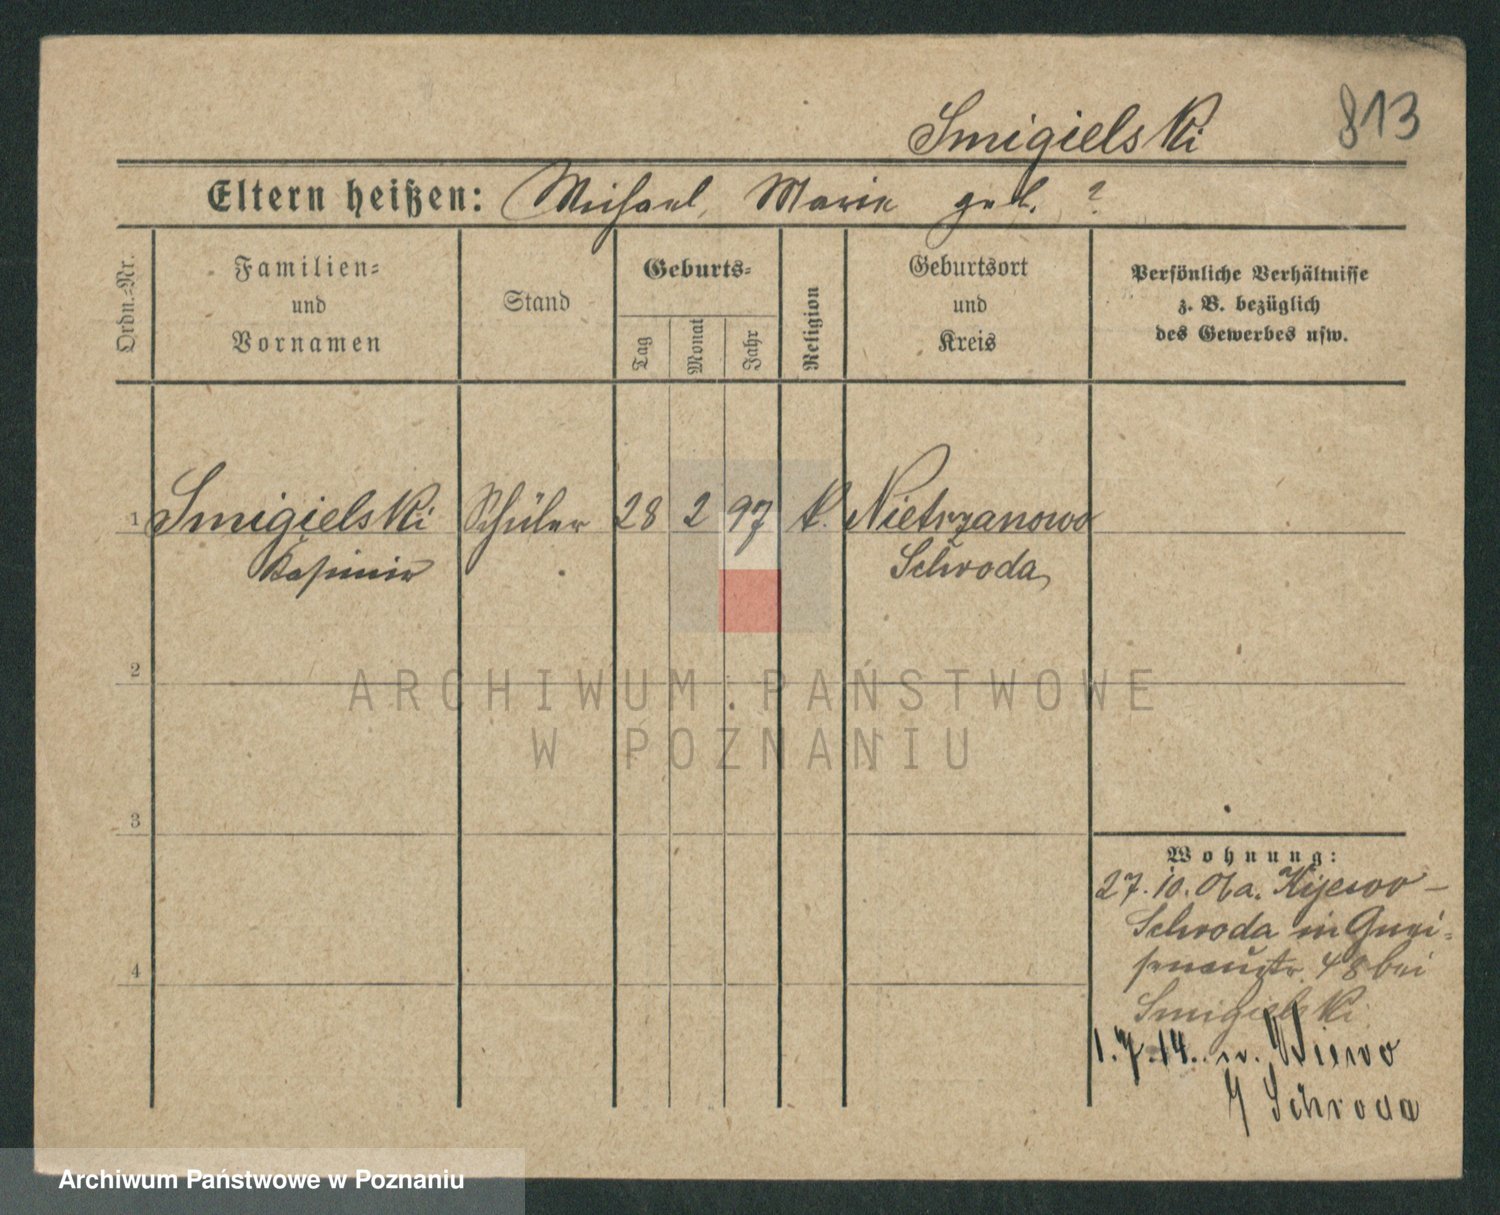 813
Smigielski
Eltern heißen: Michael, Marie geb. ?
Ordn.-Nr.
Familien-
und
Vornamen
Stand
Geburts-
Tag
Monat
Jahr
Religion
Geburtsort
und
Kreis
Persönliche Verhältnisse
z. B. bezüglich
des Gewerbes usw.
1 Smigielski Schüler 28 2 97 k. Nietrzanowo
Kasimir Schroda
2
ARCHIWUM PAŃSTWOWE
W POZNANIU
3
Wohnung:
27.10. a. Kijewo -
Schroda in Gnei-
senaustr 48 bei
Smigielski
1.7.14. n.
Schroda
4
Archiwum Państwowe w Poznaniu